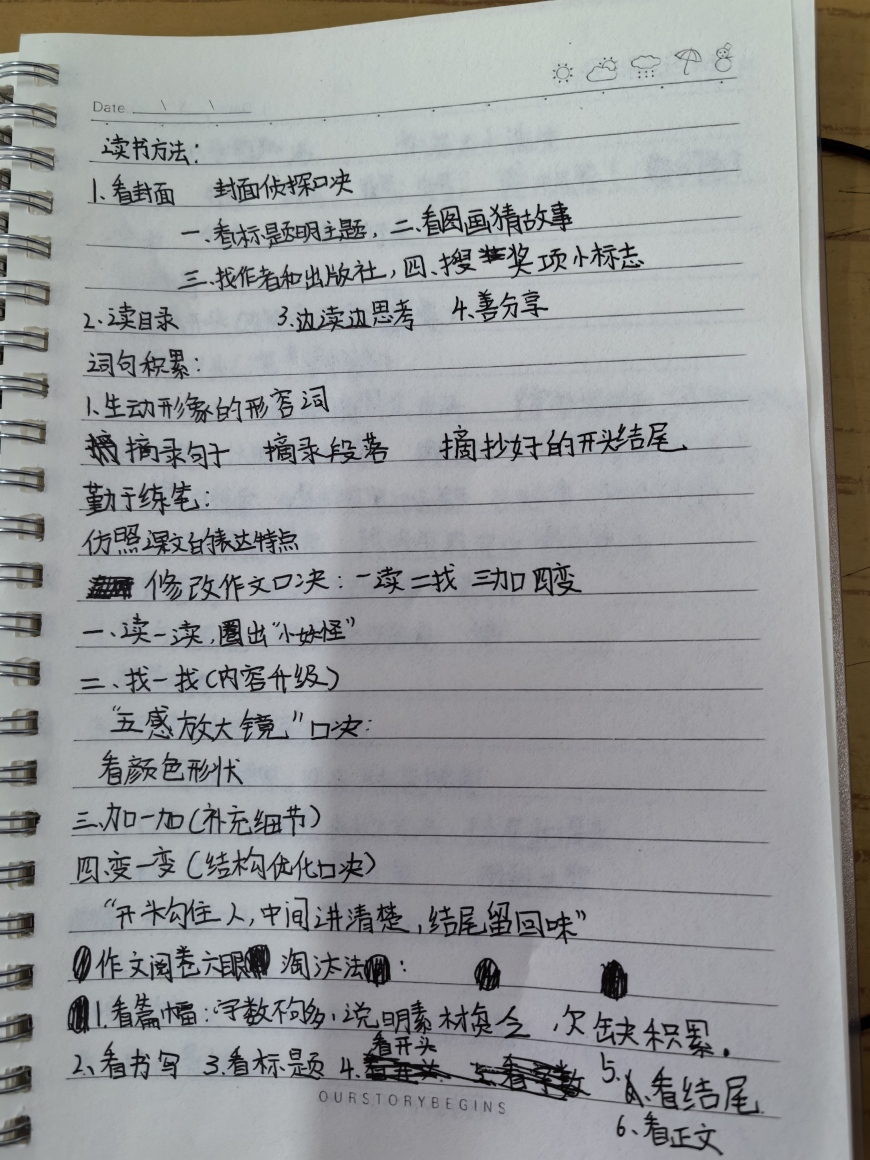 Date
读书方法：
1.看封面 封面侦探口决
一、看标题明主题，二、看图画猜故事
三、找作者和出版社，四、搜奖项小标志
2.读目录 3.边读边思考 4.善分享
词句积累：
1.生动形象的形容词
摘录句子 摘录段落 摘抄好的开头结尾
勤于练笔：
仿照课文的表达特点
修改作文口决：一读二找 三加四变
一、读一读，圈出“小妖怪”
二、找一找（内容升级）
“五感放大镜”口决：
看颜色形状
三、加一加（补充细节）
四、变一变（结构优化口决）
“开头勾住人，中间讲清楚，结尾留回味”
作文阅卷六眼 淘汰法：
1.看篇幅：字数不够多，说明素材，欠缺积累。
2、看书写 3.看标题 4.看开头 5.看结尾
6、看正文
OURSTORYBEGINS